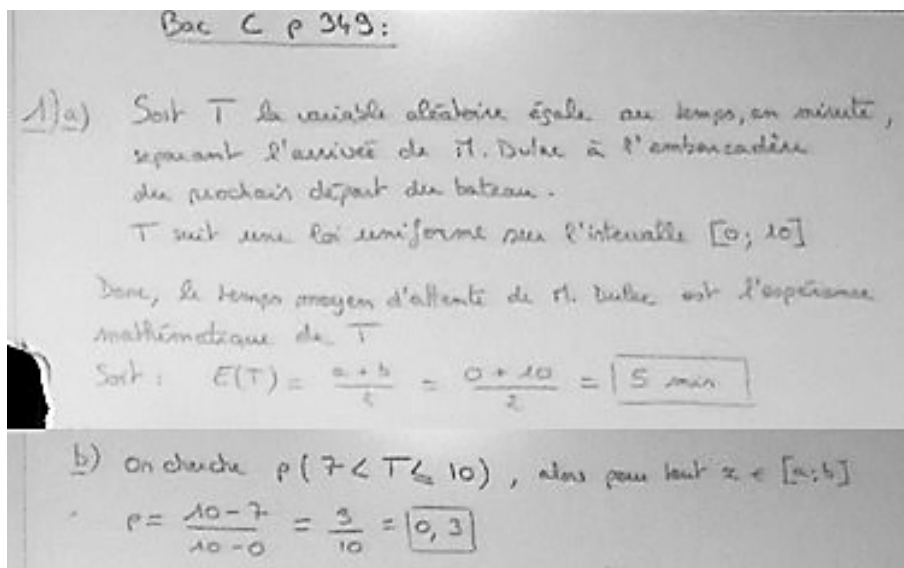 Bac C p 349:
1) a) Soit T la variable aléatoire égale au temps, en minute,
separant l'arrivée de M. Dulac à l'embarcadère
du prochain départ du bateau.
T suit une loi uniforme sur l'intervalle [0; 10]
Donc, le temps moyen d'attente de M. Dulac est l'espérance
mathématique de T
Soit : E(T) = (a + b)/2 = (0 + 10)/2 = 5 min
b) On cherche p(7 < T ≤ 10), alors pour tout x ∈ [a;b]
p = (10 - 7)/(10 - 0) = 3/10 = 0,3